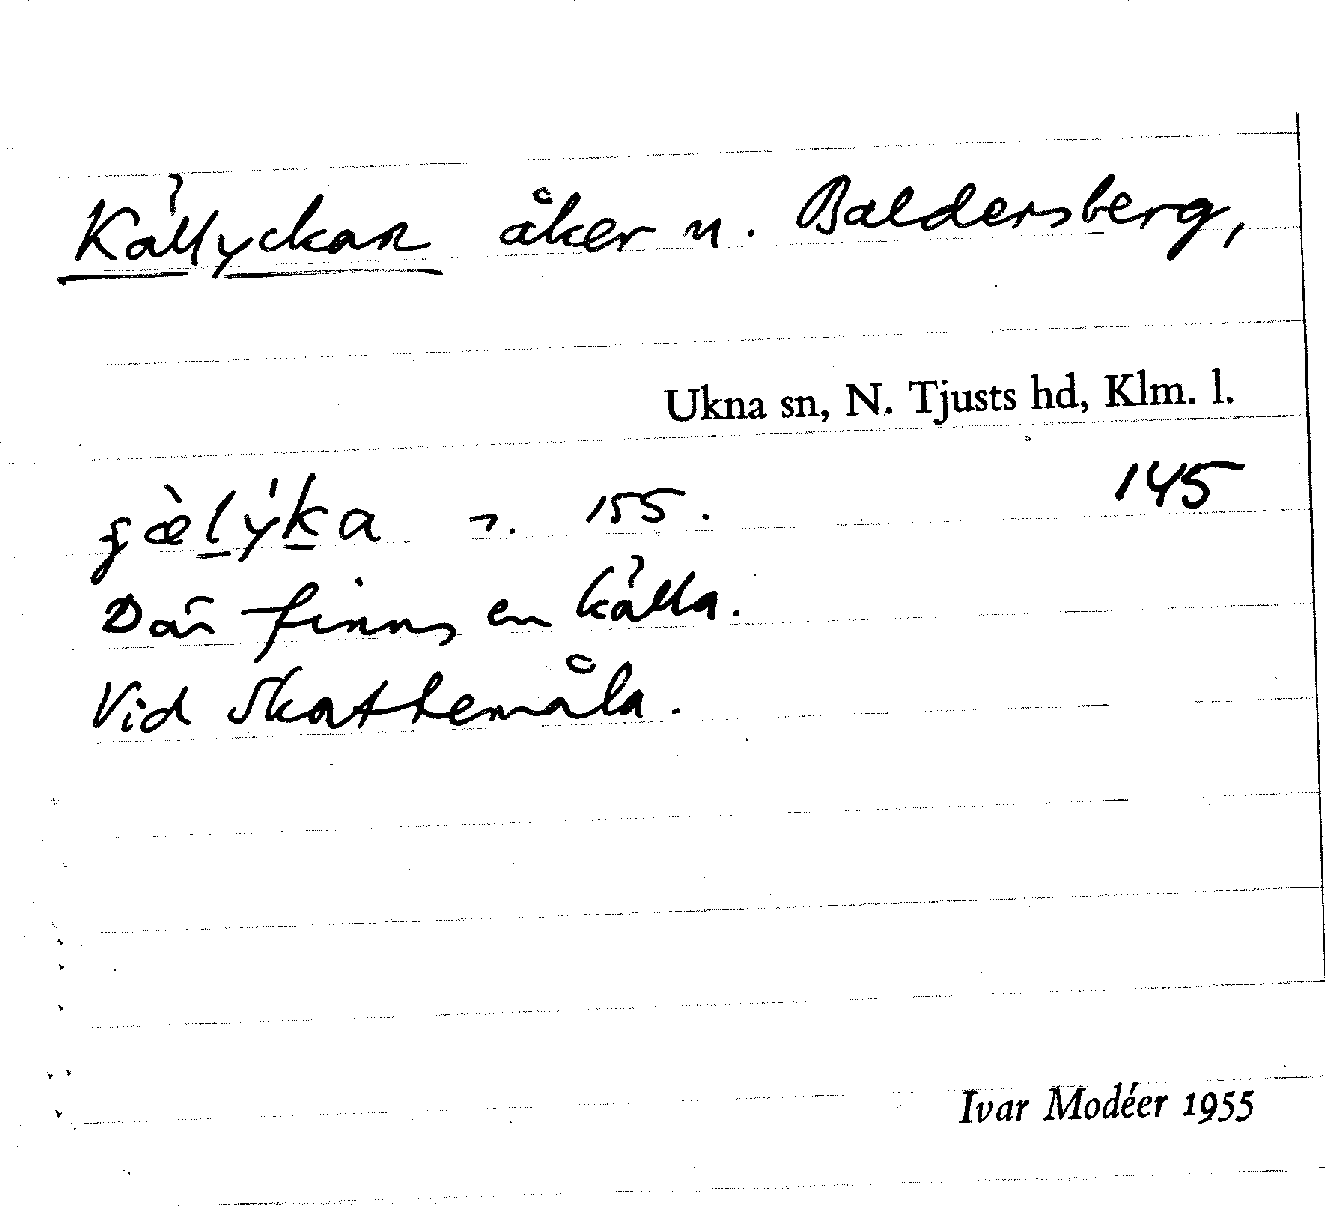 Källyckan åker u. Baldersberg,
Ukna sn, N. Tjusts hd, Klm. l.
145
155.
Där finns en källa.
Vid Skattemåla.
Ivar Modéer 1955